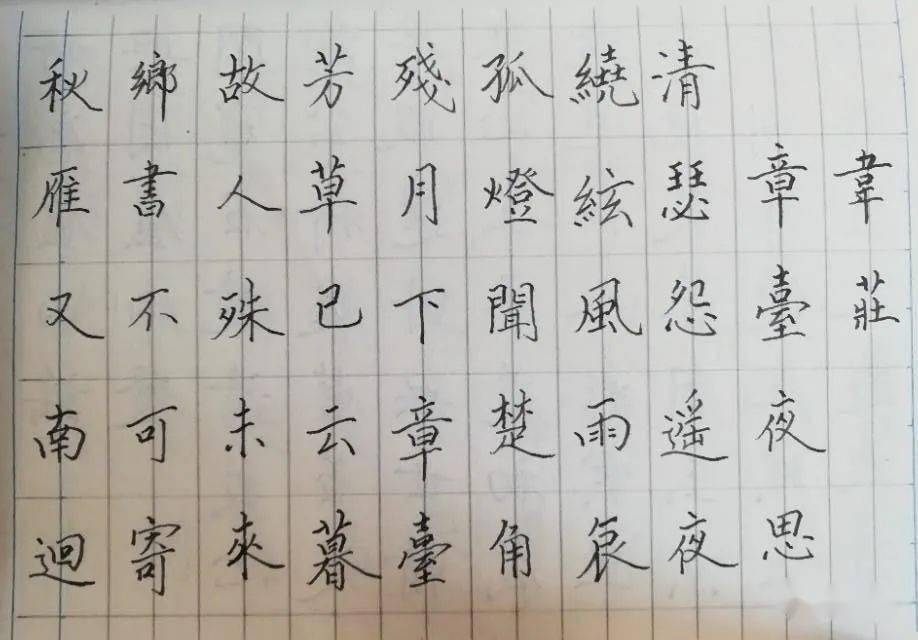 韋莊
章臺夜思
清瑟怨遙夜
繞絃風雨哀
孤燈聞楚角
殘月下章臺
芳草已云暮
故人殊未來
鄉書不可寄
秋雁又南迴